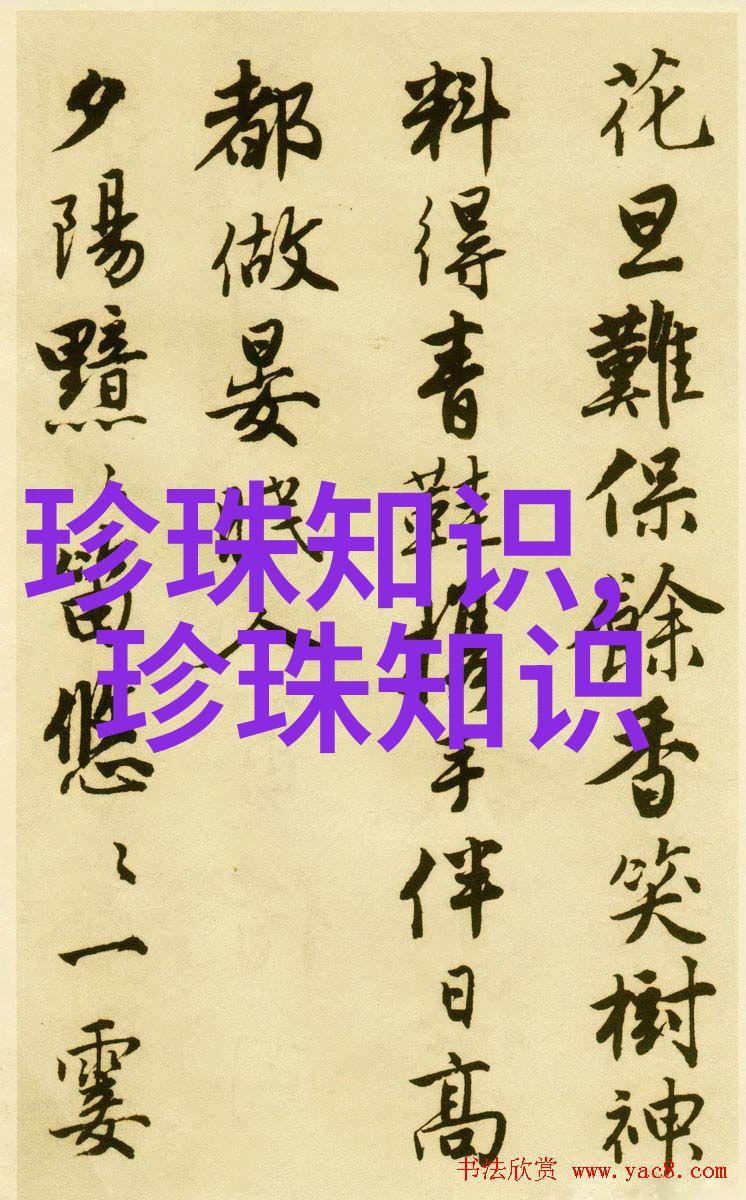 花旦難保餘香笑樹神
料得青鞋携手伴日高
都做晏眠人
夕陽黯〻笛悠〻一霎
珍珠知识,
珍珠知识
书法欣赏 www.yac8.com